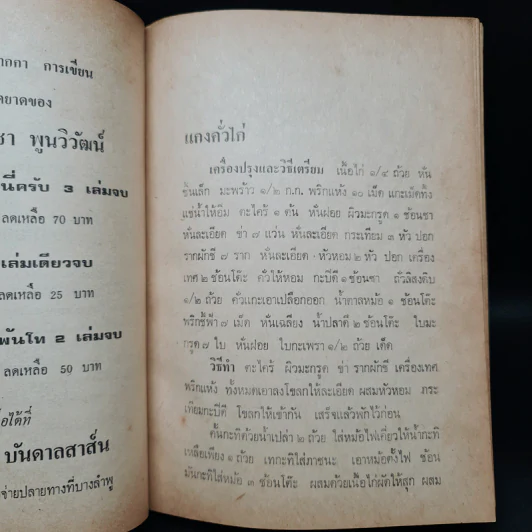 การเขียน
ยาดของ
พูนวิวัฒน์
นี่ครับ 3 เล่มจบ
ลดเหลือ 70 บาท
เล่มเดียวจบ
ลดเหลือ 25 บาท
พันโท 2 เล่มจบ
ลดเหลือ 50 บาท
อได้ที่
บันดาลสาส์น
จ่ายปลายทางที่บางลำพู
แกงคั่วไก่
เครื่องปรุงและวิธีเตรียม เนื้อไก่ ๑/๔ ถ้วย หั่น
ชิ้นเล็ก มะพร้าว ๑/๒ ก.ก. พริกแห้ง ๑๐ เม็ด แกะเม็ดทิ้ง
แช่น้ำให้อิ่ม ตะไคร้ ๑ ต้น หั่นฝอย ผิวมะกรูด ๑ ช้อนชา
หั่นละเอียด ข่า ๗ แว่น หั่นละเอียด กระเทียม ๓ หัว ปอก
รากผักชี ๗ ราก หั่นละเอียด หัวหอม ๒ หัว ปอก เครื่อง
เทศ ๒ ช้อนโต๊ะ คั่วให้หอม กะปิดี ๑ ช้อนชา ถั่วลิสงดิบ
๑/๒ ถ้วย คั่วแกะเอาเปลือกออก น้ำตาลหม้อ ๑ ช้อนโต๊ะ
พริกชี้ฟ้า ๗ เม็ด หั่นเฉลียง น้ำปลาดี ๒ ช้อนโต๊ะ ใบมะ
กรูด ๗ ใบ หั่นฝอย ใบกะเพรา ๑/๒ ถ้วย เด็ด
วิธีทำ ตะไคร้ ผิวมะกรูด ข่า รากผักชี เครื่องเทศ
พริกแห้ง ทั้งหมดเอาลงโขลกให้ละเอียด ผสมหัวหอม กระ
เทียมกะปิดี โขลกให้เข้ากัน เสร็จแล้วพักไว้ก่อน
คั้นกะทิด้วยน้ำเปล่า ๒ ถ้วย ใส่หม้อไฟเคี่ยวให้น้ำกะทิ
เหลือเพียง ๑ ถ้วย เทกะทิใส่ภาชนะ เอาหม้อตั้งไฟ ช้อน
มันกะทิใส่หม้อ ๓ ช้อนโต๊ะ ผสมด้วยเนื้อไก่ผัดให้สุก ผสม